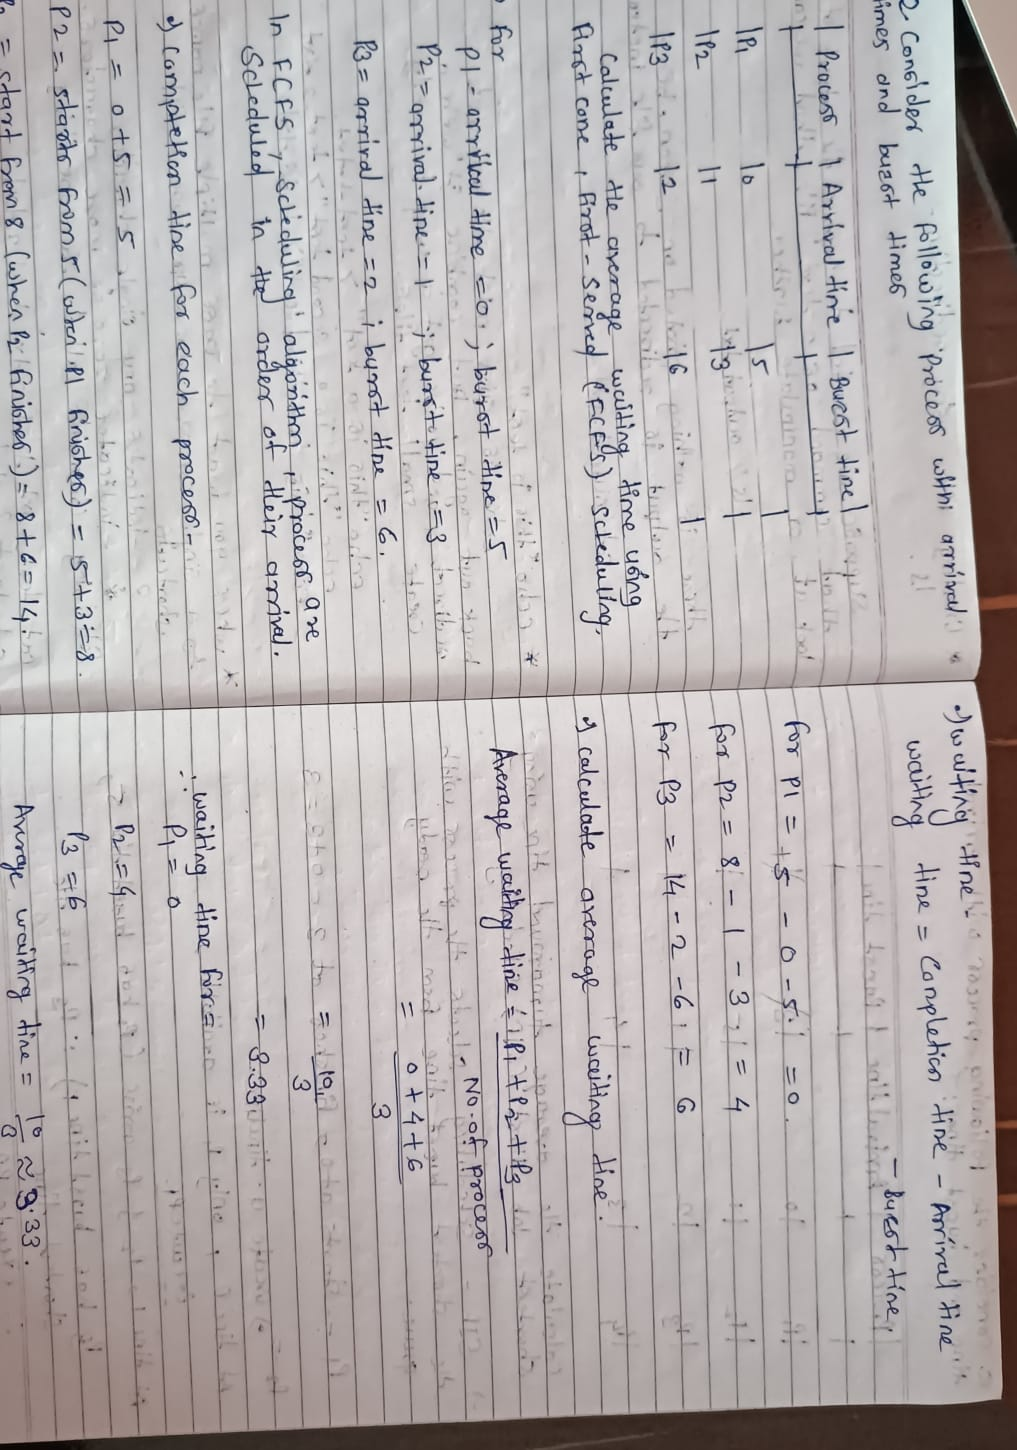 2 Consider the following process with arrival
times and burst times
| Process | Arrival time | Burst time |
| P1 | 0 | 5 |
| P2 | 1 | 3 |
| P3 | 2 | 6 |
Calculate the average waiting time using
First come, First-Served (FCFS) scheduling.
For
P1 = arrival time = 0 ; burst time = 5
P2 = arrival time = 1 ; burst time = 3
P3 = arrival time = 2 ; burst time = 6.
In FCFS, scheduling algorithm, process are
Scheduled in the order of their arrival.
Completion time for each process -
P1 = 0 + 5 = 5
P2 = starts from 5 (when P1 finishes) = 5 + 3 = 8.
= start from 8 (when P2 finishes) = 8 + 6 = 14.
Waiting time -
waiting time = Completion time - Arrival time
- Burst time
For P1 = 5 - 0 - 5 = 0.
For P2 = 8 - 1 - 3 = 4
For P3 = 14 - 2 - 6 = 6
Calculate average waiting time.
Average waiting time = P1 + P2 + P3
No. of process
= 0 + 4 + 6
3
= 10
3
= 3.33
∴ waiting time for =
P1 = 0
P2 = 4
P3 = 6
Average waiting time = 10/3 ≈ 3.33.